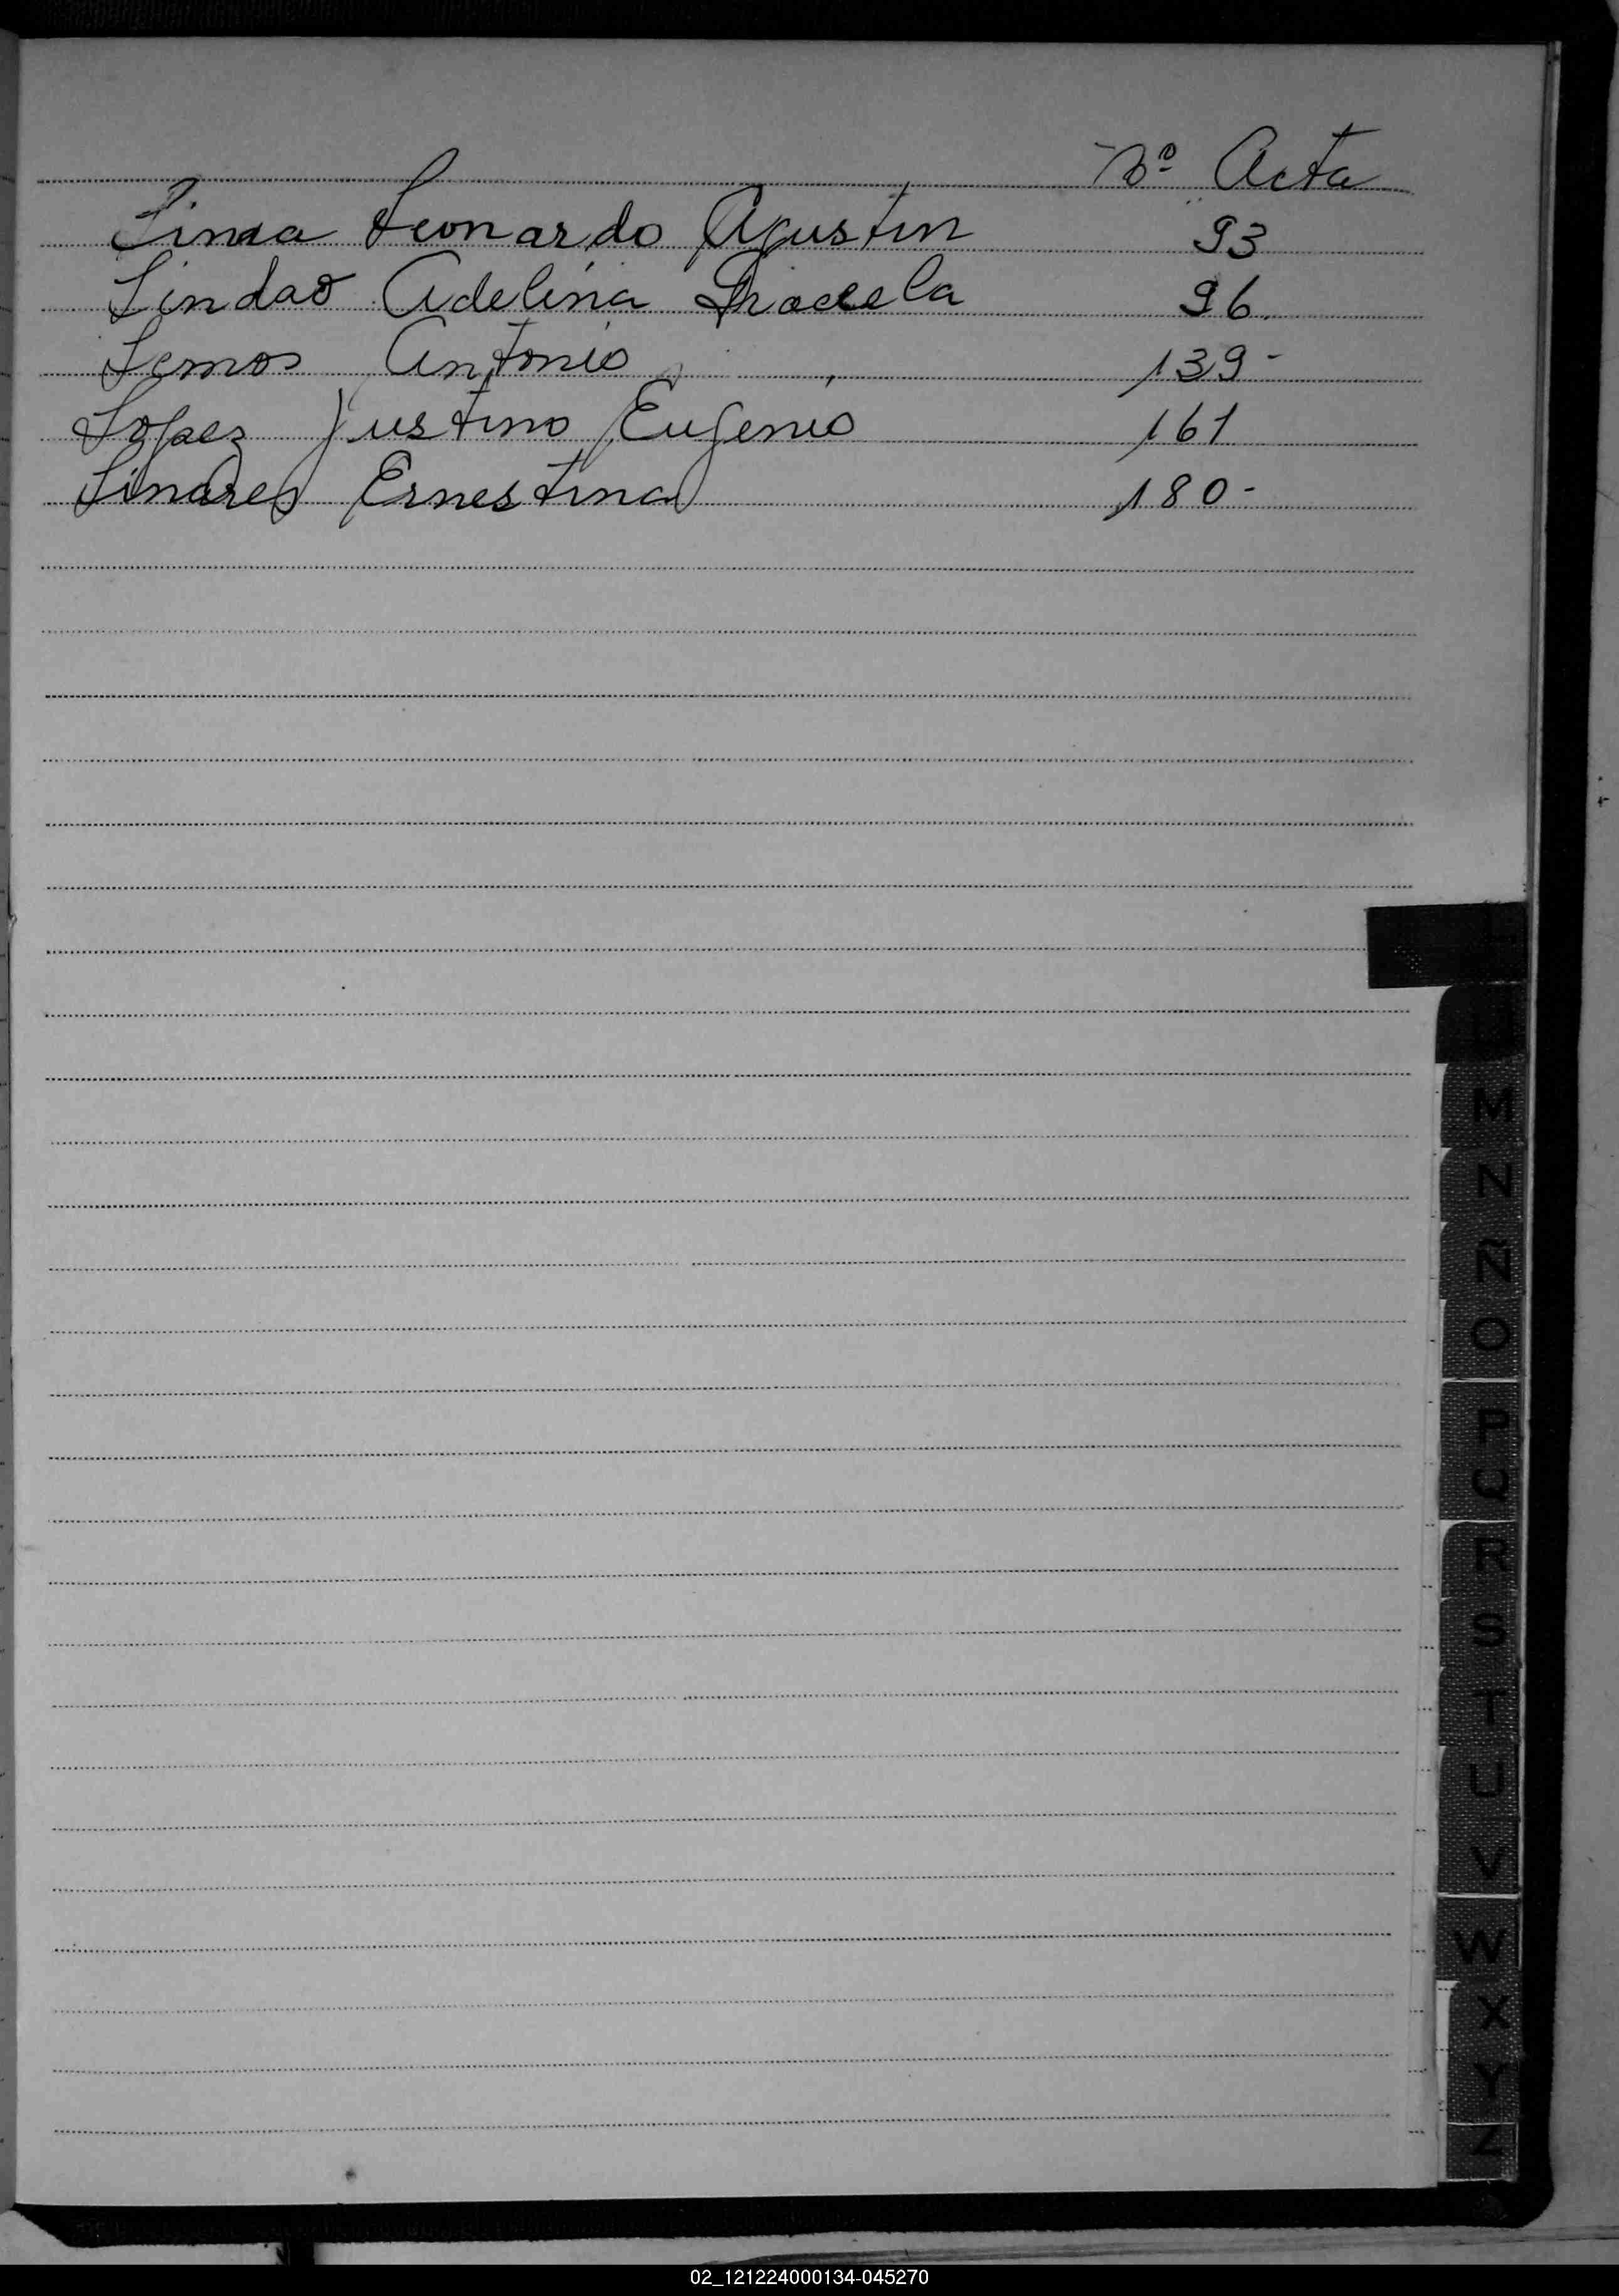 Nº Acta
Lima Leonardo Agustin 93
Lindao Adelina Graciela 96.
Lemos Antonio 139-
Lopez Justino Eugenio 161
Linares Ernestina 180-
L
M
N
Ñ
O
P
Q
R
S
T
U
V
W
X
Y
Z
02_121224000134-045270